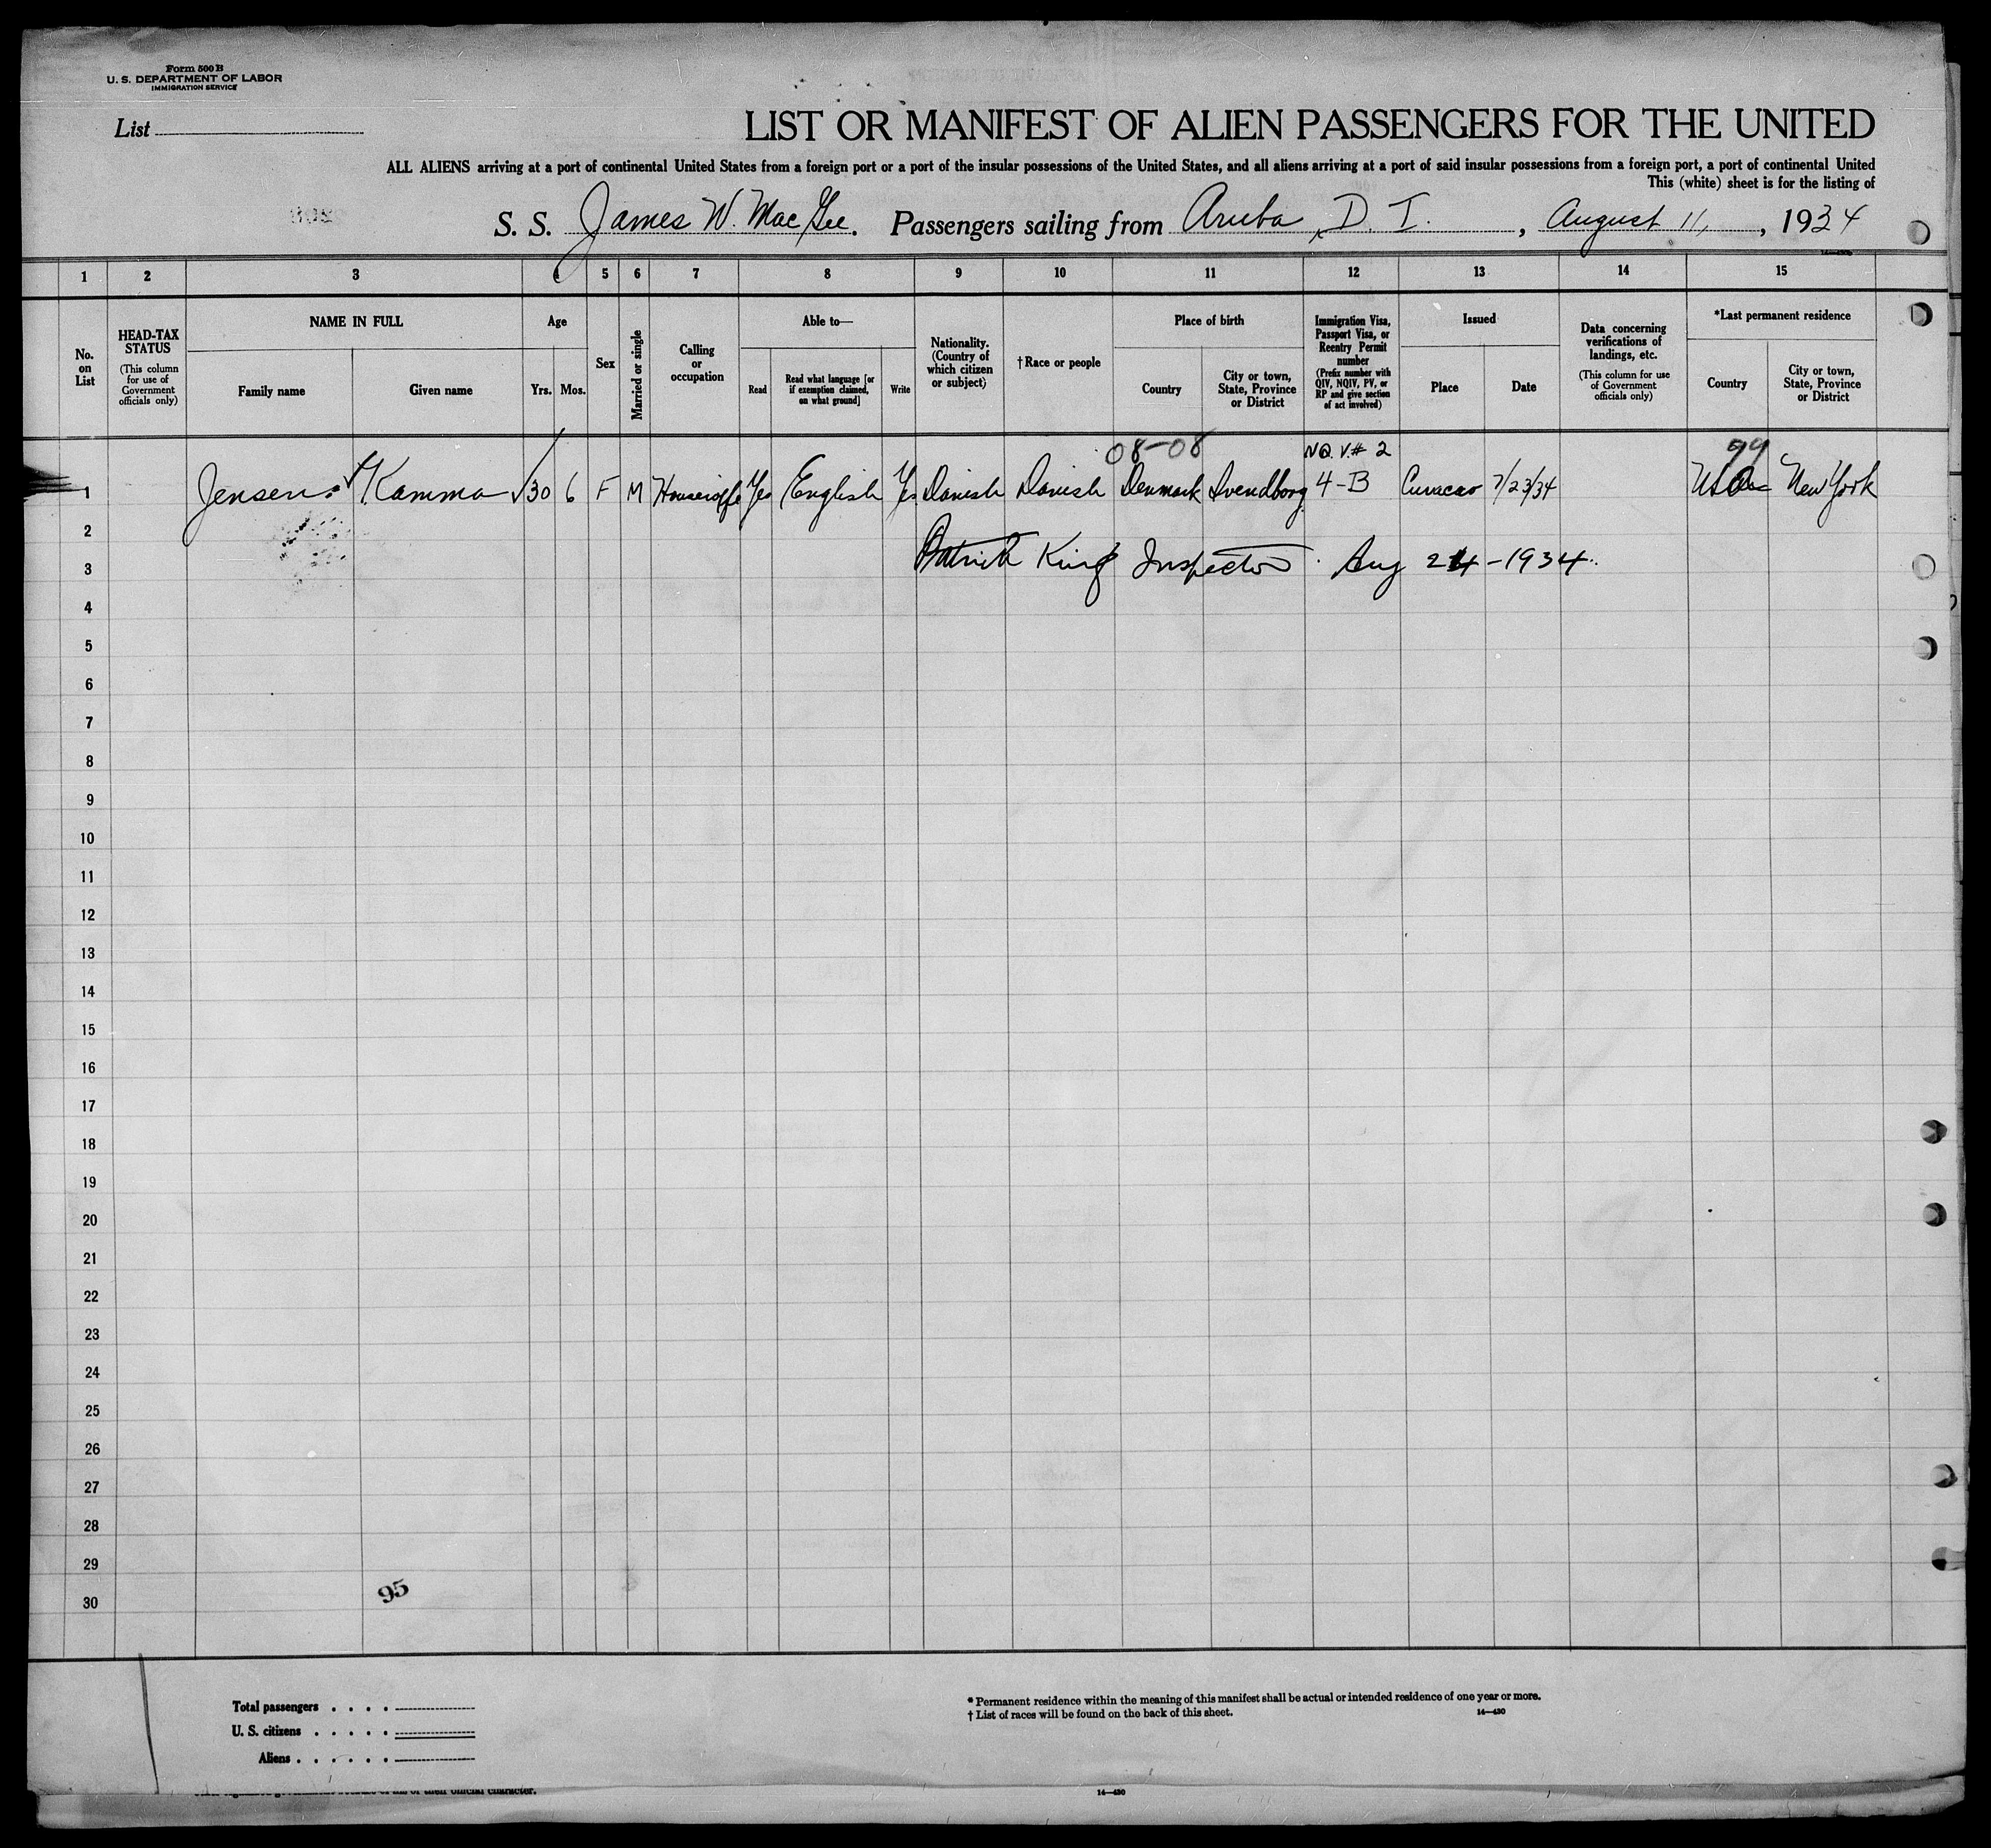 Form 500 B
U. S. DEPARTMENT OF LABOR
IMMIGRATION SERVICE
List
LIST OR MANIFEST OF ALIEN PASSENGERS FOR THE UNITED
ALL ALIENS arriving at a port of continental United States from a foreign port or a port of the insular possessions of the United States, and all aliens arriving at a port of said insular possessions from a foreign port, a port of continental United
This (white) sheet is for the listing of
S. S. James W. MacGee. Passengers sailing from Aruba, D. I., August 11, , 1934
1 2 3 4 5 6 7 8 9 10 11 12 13 14 15
No. on List
HEAD-TAX STATUS (This column for use of Government officials only)
NAME IN FULL
Family name
Given name
Age
Yrs. Mos.
Sex
Married or single
Calling or occupation
Able to—
Read
Read what language [or if exemption claimed, on what ground]
Write
Nationality. (Country of which citizen or subject)
† Race or people
Place of birth
Country
City or town, State, Province or District
Immigration Visa, Passport Visa, or Reentry Permit number (Prefix number with QIV, NQIV, PV, or RP and give section of act involved)
Issued
Place
Date
Data concerning verifications of landings, etc. (This column for use of Government officials only)
*Last permanent residence
Country
City or town, State, Province or District
08-08 NQ. V. # 2 99
1 Jensen Kamma 30 6 F M Housewife Yes English Yes Danish Danish Denmark Svendborg 4-B Curacao 7/23/34 USA New York
2
3 Patrick King Inspector Aug 24-1934
4
5
6
7
8
9
10
11
12
13
14
15
16
17
18
19
20
21
22
23
24
25
26
27
28
29
30
95
Total passengers . . . .
U. S. citizens . . . . .
Aliens . . . . . .
* Permanent residence within the meaning of this manifest shall be actual or intended residence of one year or more.
† List of races will be found on the back of this sheet.
14—430
14—430